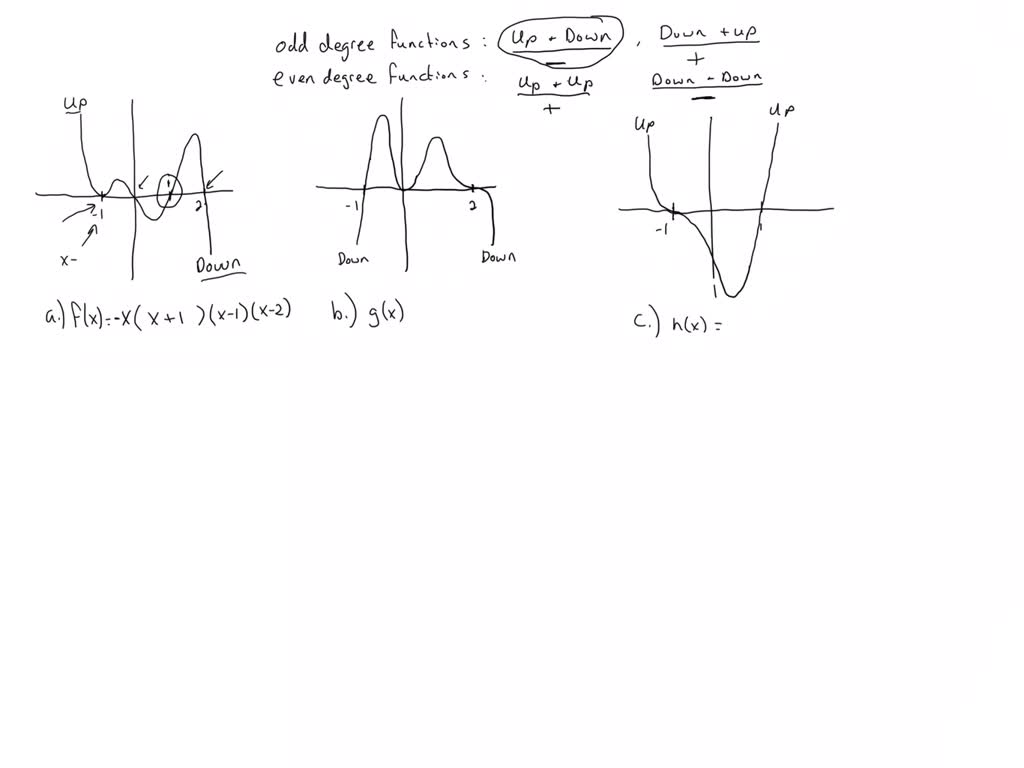 odd degree functions : Up + Down , Down + up
- +
even degree functions : Up + Up Down - Down
+ -
Up
Up
Up
1
-1
2
-1
2
-1
1
x-
Down
Down
Down
1
a.) f(x)=-x(x+1)(x-1)(x-2)
b.) g(x)
c.) h(x) =